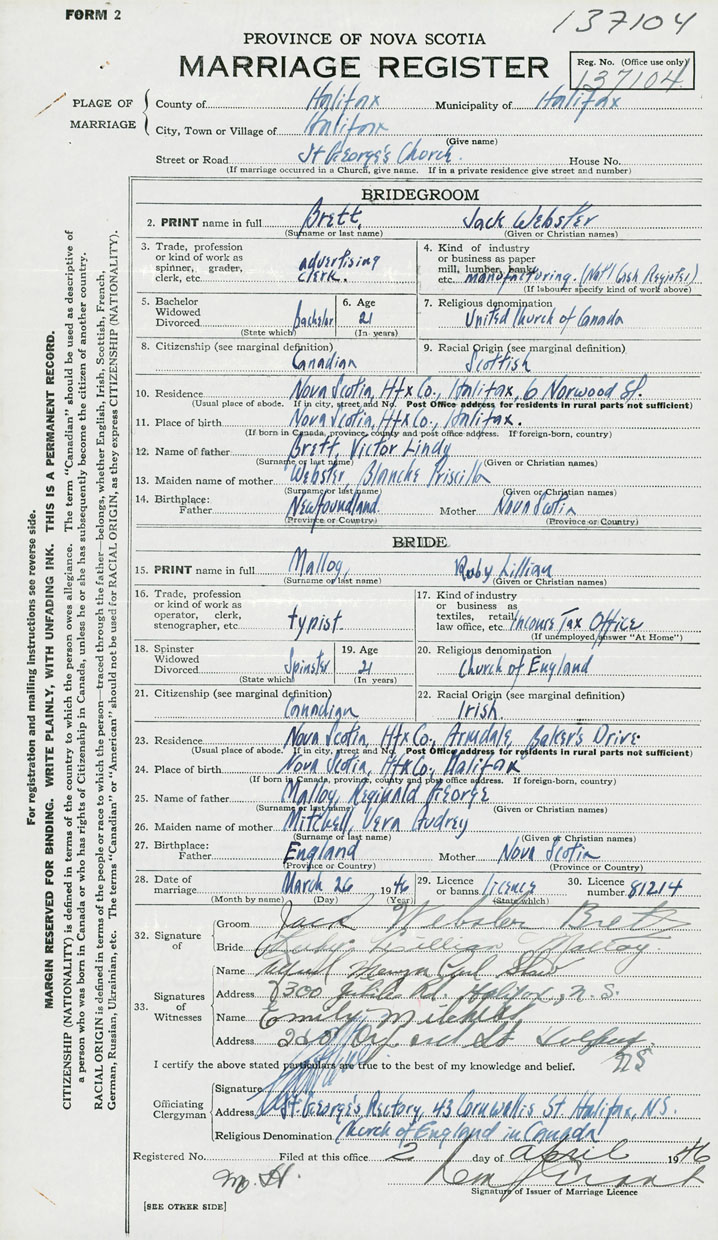 FORM 2
137104
PROVINCE OF NOVA SCOTIA
MARRIAGE REGISTER
Reg. No. (Office use only)
137104
PLACE OF MARRIAGE
County of Halifax Municipality of Halifax
City, Town or Village of Halifax
(Give name)
Street or Road St George's Church. House No.
(If marriage occurred in a Church, give name. If in a private residence give street and number)
BRIDEGROOM
2. PRINT name in full Brett, Jack Webster
(Surname or last name) (Given or Christian names)
3. Trade, profession or kind of work as spinner, grader, clerk, etc. advertising clerk.
4. Kind of industry or business as paper mill, lumber, bank, etc. manufacturing. (Nat'l Cash Register)
(If labourer specify kind of work above)
5. Bachelor Widowed Divorced Bachelor
(State which)
6. Age 21
(In years)
7. Religious denomination United Church of Canada
8. Citizenship (see marginal definition) Canadian
9. Racial Origin (see marginal definition) Scottish
10. Residence Nova Scotia, Hfx Co., Halifax, 6 Norwood St.
(Usual place of abode. If in city, street and No. Post Office address for residents in rural parts not sufficient)
11. Place of birth Nova Scotia, Hfx Co., Halifax.
(If born in Canada, province, county and post office address. If foreign-born, country)
12. Name of father Brett, Victor Lindy
(Surname or last name) (Given or Christian names)
13. Maiden name of mother Webster, Blanche Priscilla
(Surname or last name) (Given or Christian names)
14. Birthplace: Father Newfoundland. Mother Nova Scotia
(Province or Country) (Province or Country)
BRIDE
15. PRINT name in full Malloy, Ruby Lillian
(Surname or last name) (Given or Christian names)
16. Trade, profession or kind of work as operator, clerk, stenographer, etc. typist.
17. Kind of industry or business as textiles, retail, law office, etc. Income Tax Office
(If unemployed, answer "At Home")
18. Spinster Widowed Divorced Spinster
(State which)
19. Age 21
(In years)
20. Religious denomination Church of England
21. Citizenship (see marginal definition) Canadian
22. Racial Origin (see marginal definition) Irish.
23. Residence Nova Scotia, Hfx Co., Armdale, Baker's Drive
(Usual place of abode. If in city, street and No. Post Office address for residents in rural parts not sufficient)
24. Place of birth Nova Scotia, Hfx Co., Halifax
(If born in Canada, province, county and post office address. If foreign-born, country)
25. Name of father Malloy, Reginald George
(Surname or last name) (Given or Christian names)
26. Maiden name of mother Mitchell, Vera Audrey
(Surname or last name) (Given or Christian names)
27. Birthplace: Father England Mother Nova Scotia
(Province or Country) (Province or Country)
28. Date of marriage March 26 1946
(Month by name) (Day) (Year)
29. Licence or banns licence
(State which)
30. Licence number 81214
32. Signature of
Groom Jack Webster Brett
Bride Ruby Lillian Malloy.
33. Signatures of Witnesses
Name
Address 300 Rd. Halifax, N.S.
Name Emily Mitchell
Address St Halifax
NS
I certify the above stated particulars are true to the best of my knowledge and belief.
Officiating Clergyman
Signature
Address St George's Rectory, 43 Cornwallis St. Halifax, N.S.
Religious Denomination Church of England in Canada
Registered No. Filed at this office 2 day of April 1946
M. H.
Signature of Issuer of Marriage Licence
[SEE OTHER SIDE]
For registration and mailing instructions see reverse side.
MARGIN RESERVED FOR BINDING. WRITE PLAINLY, WITH UNFADING INK. THIS IS A PERMANENT RECORD.
CITIZENSHIP (NATIONALITY) is defined in terms of the country to which the person owes allegiance. The term "Canadian" should be used as descriptive of
a person who was born in Canada or who has rights of Citizenship in Canada, unless he or she has subsequently become the citizen of another country.
RACIAL ORIGIN is defined in terms of the people or race to which the person—traced through the father—belongs, whether English, Irish, Scottish, French,
German, Russian, Ukrainian, etc. The terms "Canadian" or "American" should not be used for RACIAL ORIGIN, as they express CITIZENSHIP (NATIONALITY).